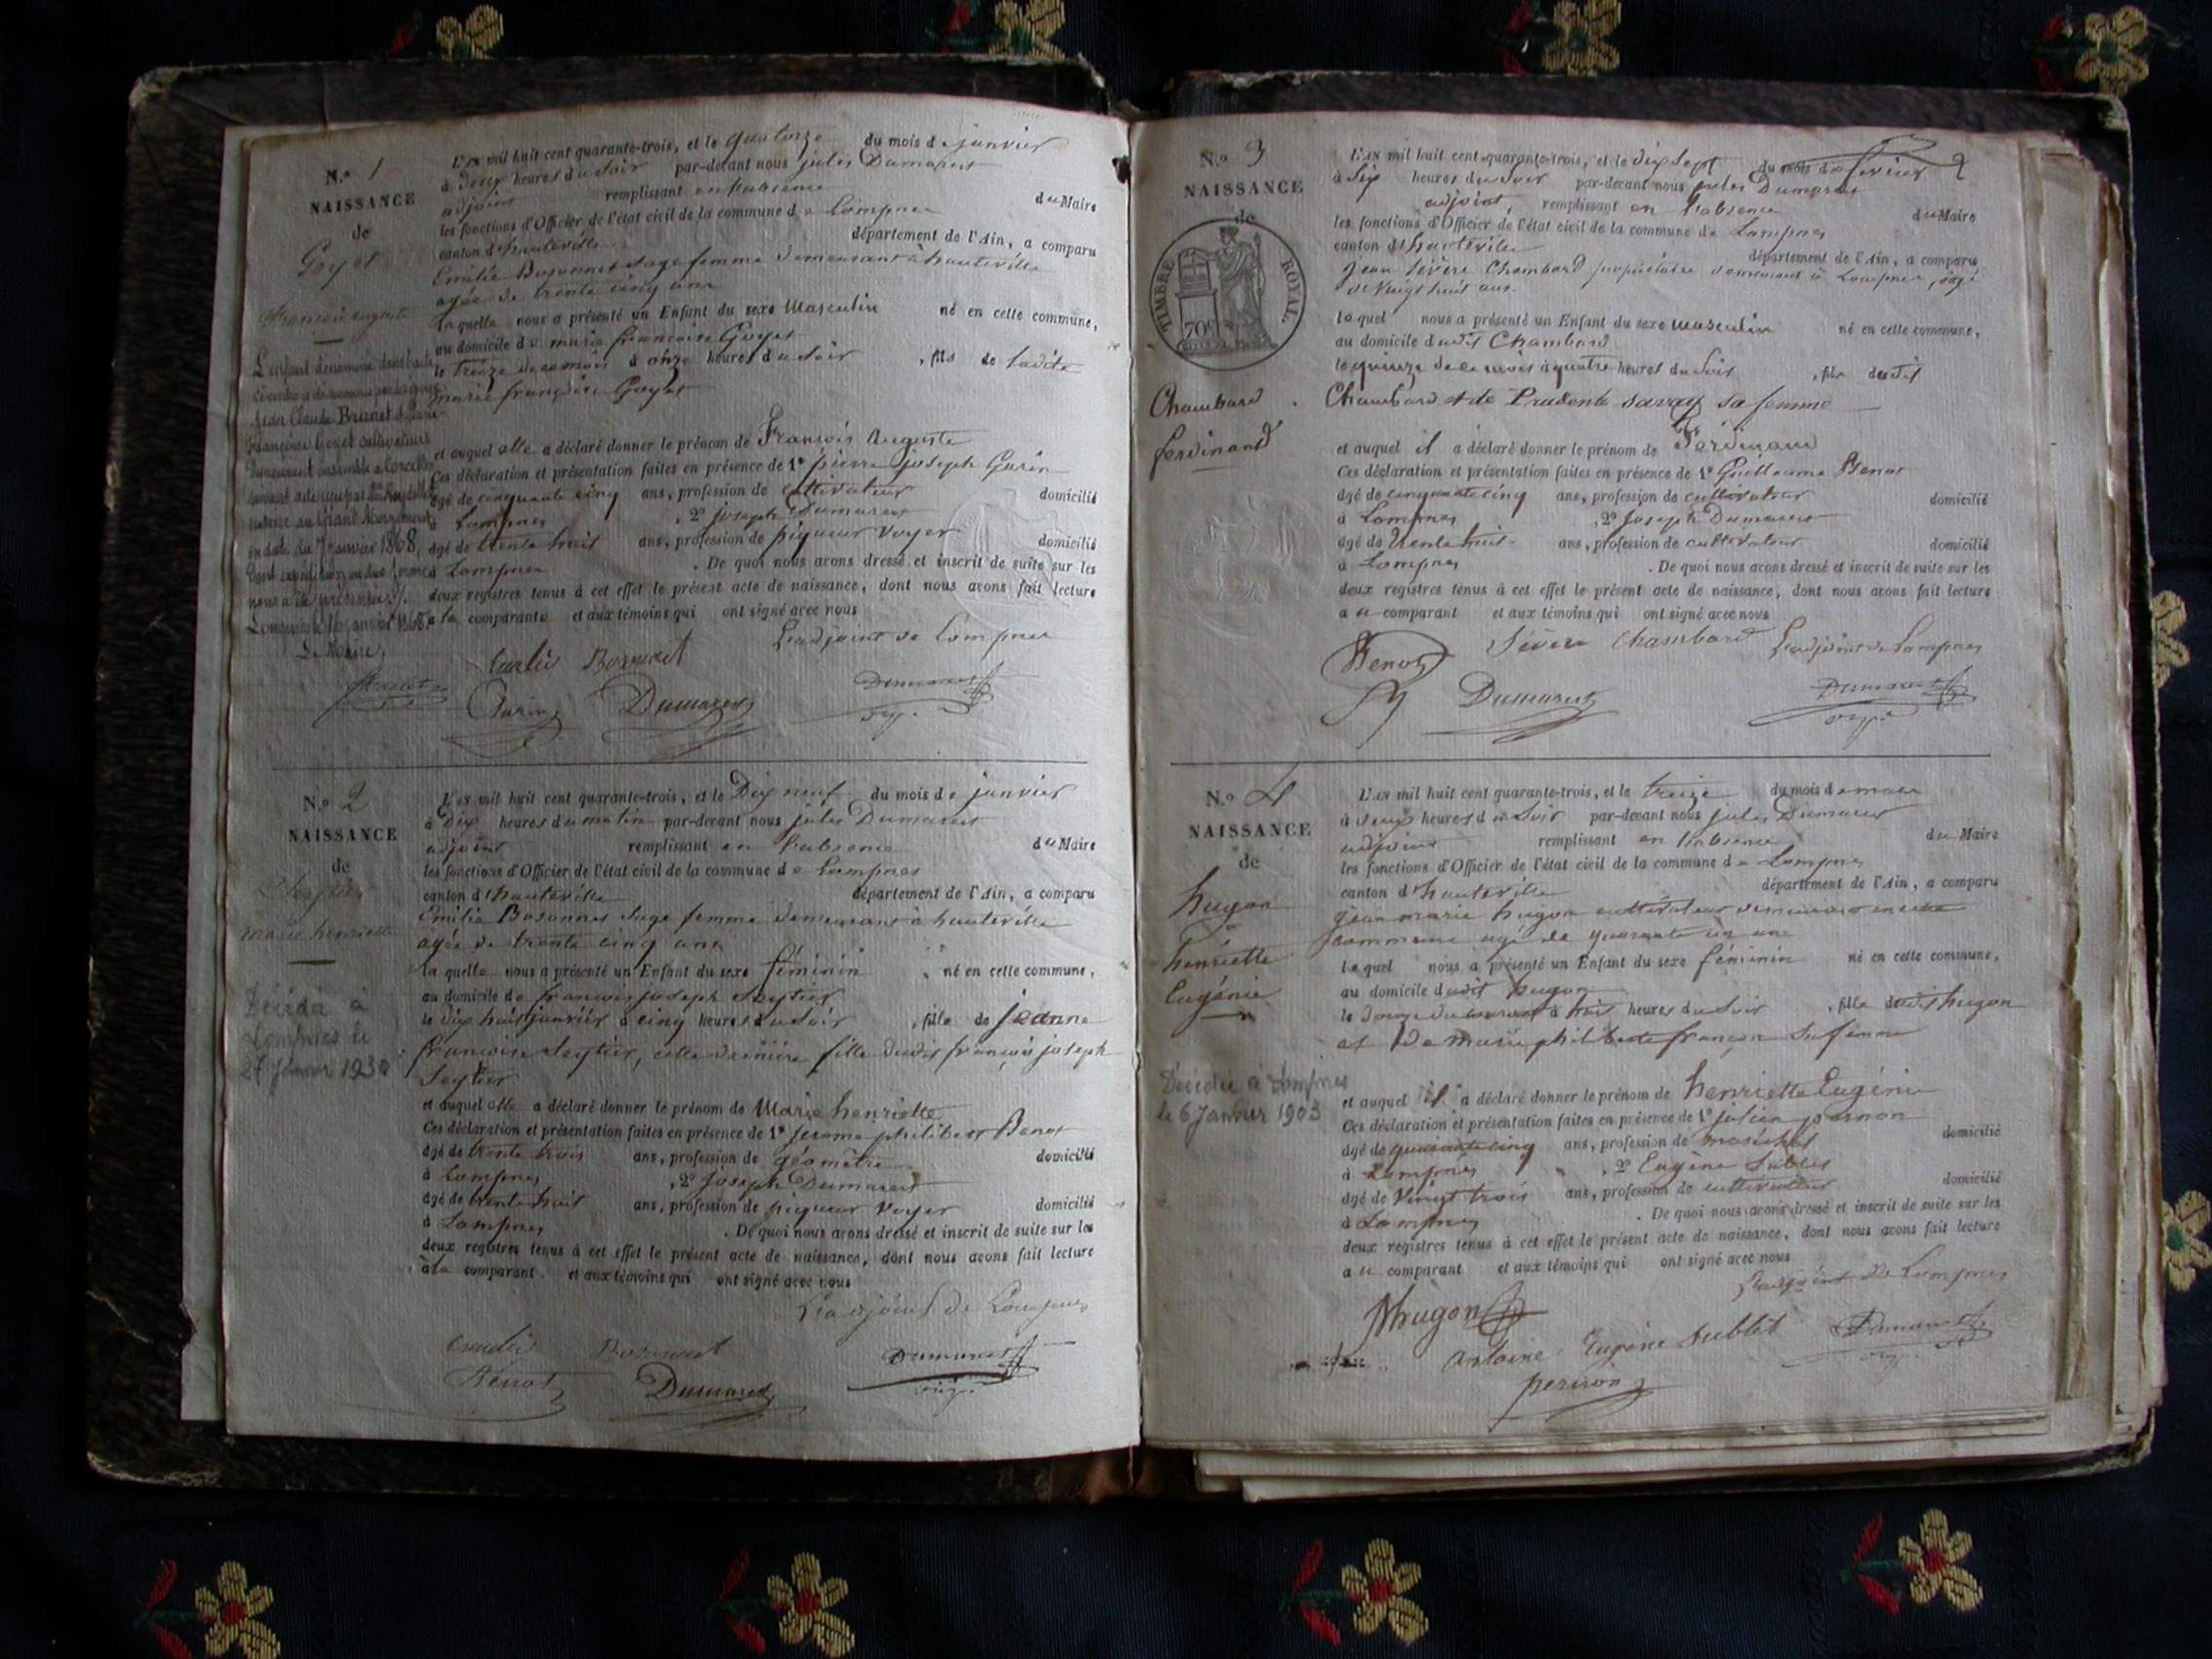 N.º 1
NAISSANCE
de
Goyet
françois auguste
L'AN mil huit cent quarante-trois, et le quatorze du mois de janvier
à deux heures du soir par-devant nous jules Dumarest
adjoint remplissant en l'absence du Maire
les fonctions d'Officier de l'état civil de la commune de Lompnes
canton d'hauteville département de l'Ain, a comparu
Emilie Bozonnet sage femme demeurant à hauteville
agée de trente cinq ans
laquelle nous a présenté un Enfant du sexe Masculin né en cette commune,
au domicile de marie françoise Goyet
le treize de ce mois à onze heures du soir, fils de ladite
marie françoise Goyet
et auquel elle a déclaré donner le prénom de François Auguste
Ces déclaration et présentation faites en présence de 1º pierre joseph Garin
âgé de cinquante cinq ans, profession de cultivateur domicilié
à Lompnes, 2º joseph Dumarest
âgé de trente huit ans, profession de piqueur voyer domicilié
à Lompnes. De quoi nous avons dressé et inscrit de suite sur les
deux registres tenus à cet effet le présent acte de naissance, dont nous avons fait lecture
à la comparante et aux témoins qui ont signé avec nous
L'enfant dénommé dans l'acte
Jean Claude Brunet et Marie
Françoise Goyet cultivateurs
demeurant ensemble à
notaire au Grand Abergement
en date du 7 janvier 1868,
nous a été présentée
Lompnes le 16 janvier 1868.
Le Maire,
L'adjoint de Lompnes
Bozonnet
Garin Dumarest Dumarest
N.º 2
NAISSANCE
de
Seytier
marie henriette
L'AN mil huit cent quarante-trois, et le Dix neuf du mois de janvier
à dix heures du matin par-devant nous jules Dumarest
adjoint remplissant en l'absence du Maire
les fonctions d'Officier de l'état civil de la commune de Lompnes
canton d'hauteville département de l'Ain, a comparu
Emilie Bozonnet sage femme demeurant à hauteville
agée de trente cinq ans
laquelle nous a présenté un Enfant du sexe féminin, né en cette commune,
au domicile de françois joseph Seytier
le dix huit janvier à cinq heures du soir, fille de jeanne
françoise Seytier, cette dernière fille dudit françois joseph
Seytier
et auquel elle a déclaré donner le prénom de Marie henriette
Ces déclaration et présentation faites en présence de 1º jerome philibert Benot
âgé de trente trois ans, profession de géomètre domicilié
à Lompnes, 2º joseph Dumarest
âgé de trente huit ans, profession de piqueur voyer domicilié
à Lompnes. De quoi nous avons dressé et inscrit de suite sur les
deux registres tenus à cet effet le présent acte de naissance, dont nous avons fait lecture
à la comparant et aux témoins qui ont signé avec nous
Décédée à
Lompnes le
L'adjoint de Lompnes
Bozonnet
Benot Dumarest Dumarest
N.º 3
NAISSANCE
de
TIMBRE ROYAL
70c
Chambard
ferdinand
2
L'AN mil huit cent quarante-trois, et le dix sept du mois de fevrier
à six heures du soir par-devant nous jules Dumarest
adjoint remplissant en l'absence du Maire
les fonctions d'Officier de l'état civil de la commune de Lompnes
canton d'hauteville département de l'Ain, a comparu
jean Sévère Chambard propriétaire demeurant à Lompnes, âgé
de Vingt huit ans.
lequel nous a présenté un Enfant du sexe masculin né en cette commune,
au domicile dudit Chambard
le quinze de ce mois à quatre heures du soir, fils dudit
Chambard et de Prudente Savay sa femme
et auquel il a déclaré donner le prénom de Ferdinand
Ces déclaration et présentation faites en présence de 1º Guillaume Benot
âgé de cinquante cinq ans, profession de cultivateur domicilié
à Lompnes, 2º Joseph Dumarest
âgé de trente huit ans, profession de cultivateur domicilié
à Lompnes. De quoi nous avons dressé et inscrit de suite sur les
deux registres tenus à cet effet le présent acte de naissance, dont nous avons fait lecture
au comparant et aux témoins qui ont signé avec nous
Benot Sévère Chambard L'adjoint de Lompnes
Dumarest Dumarest
N.º 4
NAISSANCE
de
hugon
henriette
Eugénie
L'AN mil huit cent quarante-trois, et le treize du mois de mars
à deux heures du soir par-devant nous jules Dumarest
adjoint remplissant en l'absence du Maire
les fonctions d'Officier de l'état civil de la commune de Lompnes
canton d'hauteville département de l'Ain, a comparu
jean marie hugon cultivateur demeurant en cette
commune agé de quarante un ans
lequel nous a présenté un Enfant du sexe féminin né en cette commune,
au domicile dudit hugon
le douze du courant à huit heures du soir, fille dudit hugon
et de marie philiberte françon sa femme
et auquel il a déclaré donner le prénom de henriette Eugénie
Ces déclaration et présentation faites en présence de 1º
âgé de quarante cinq ans, profession de maréchal domicilié
à Lompnes, 2º Eugène Sublet
âgé de Vingt trois ans, profession de cultivateur domicilié
à Lompnes. De quoi nous avons dressé et inscrit de suite sur les
deux registres tenus à cet effet le présent acte de naissance, dont nous avons fait lecture
au comparant et aux témoins qui ont signé avec nous
Décédée à Lompnes
le 6 Janvier 1903
L'adjoint de Lompnes
hugon
antoine Eugène Sublet Dumarest